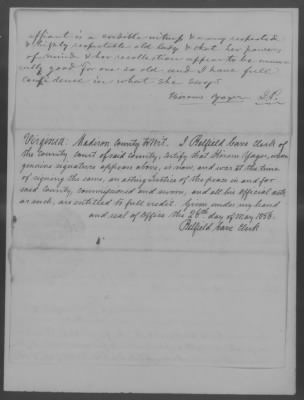 affiant is a credible witness & a very respected
& highly respectable old lady & that her powers
of mind & her recollection appear to be unusu
ally good for one so old and I have full
confidence in what she says.
Horace Yager J.P.
Virginia: Madison County to Wit. I Belfield Cave Clerk of
the County Court of said County, certify that Horace Yager, whose
genuine signature appears above, is now, and was at the time
of signing the same, an acting Justice of the peace in and for
said County, commissioned and sworn, and all his official acts,
as such, are entitled to full credit. Given under my hand
and seal of Office this 26th day of May 1856.
Belfield Cave Clerk